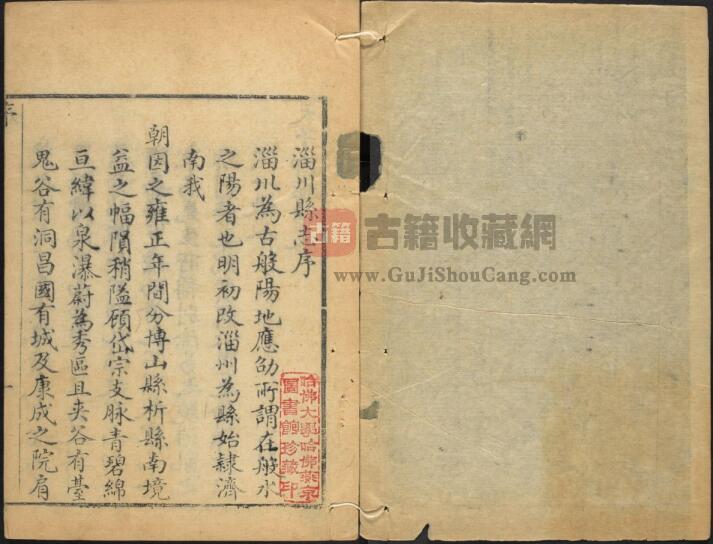 淄川縣志序
淄川為古般陽地應劭所謂在般水
之陽者也明初改淄州為縣始隸濟
南我
朝因之雍正年間分博山縣析縣南境
益之幅隕稍隘頋岱宗支脉青碧綿
亘緯以泉瀑蔚為秀區且夾谷有臺
鬼谷有洞昌國有城及康成之院肩
序
哈佛大學哈佛燕京
圖書館珍藏印
古籍
古籍收藏網
www.GuJiShouCang.com